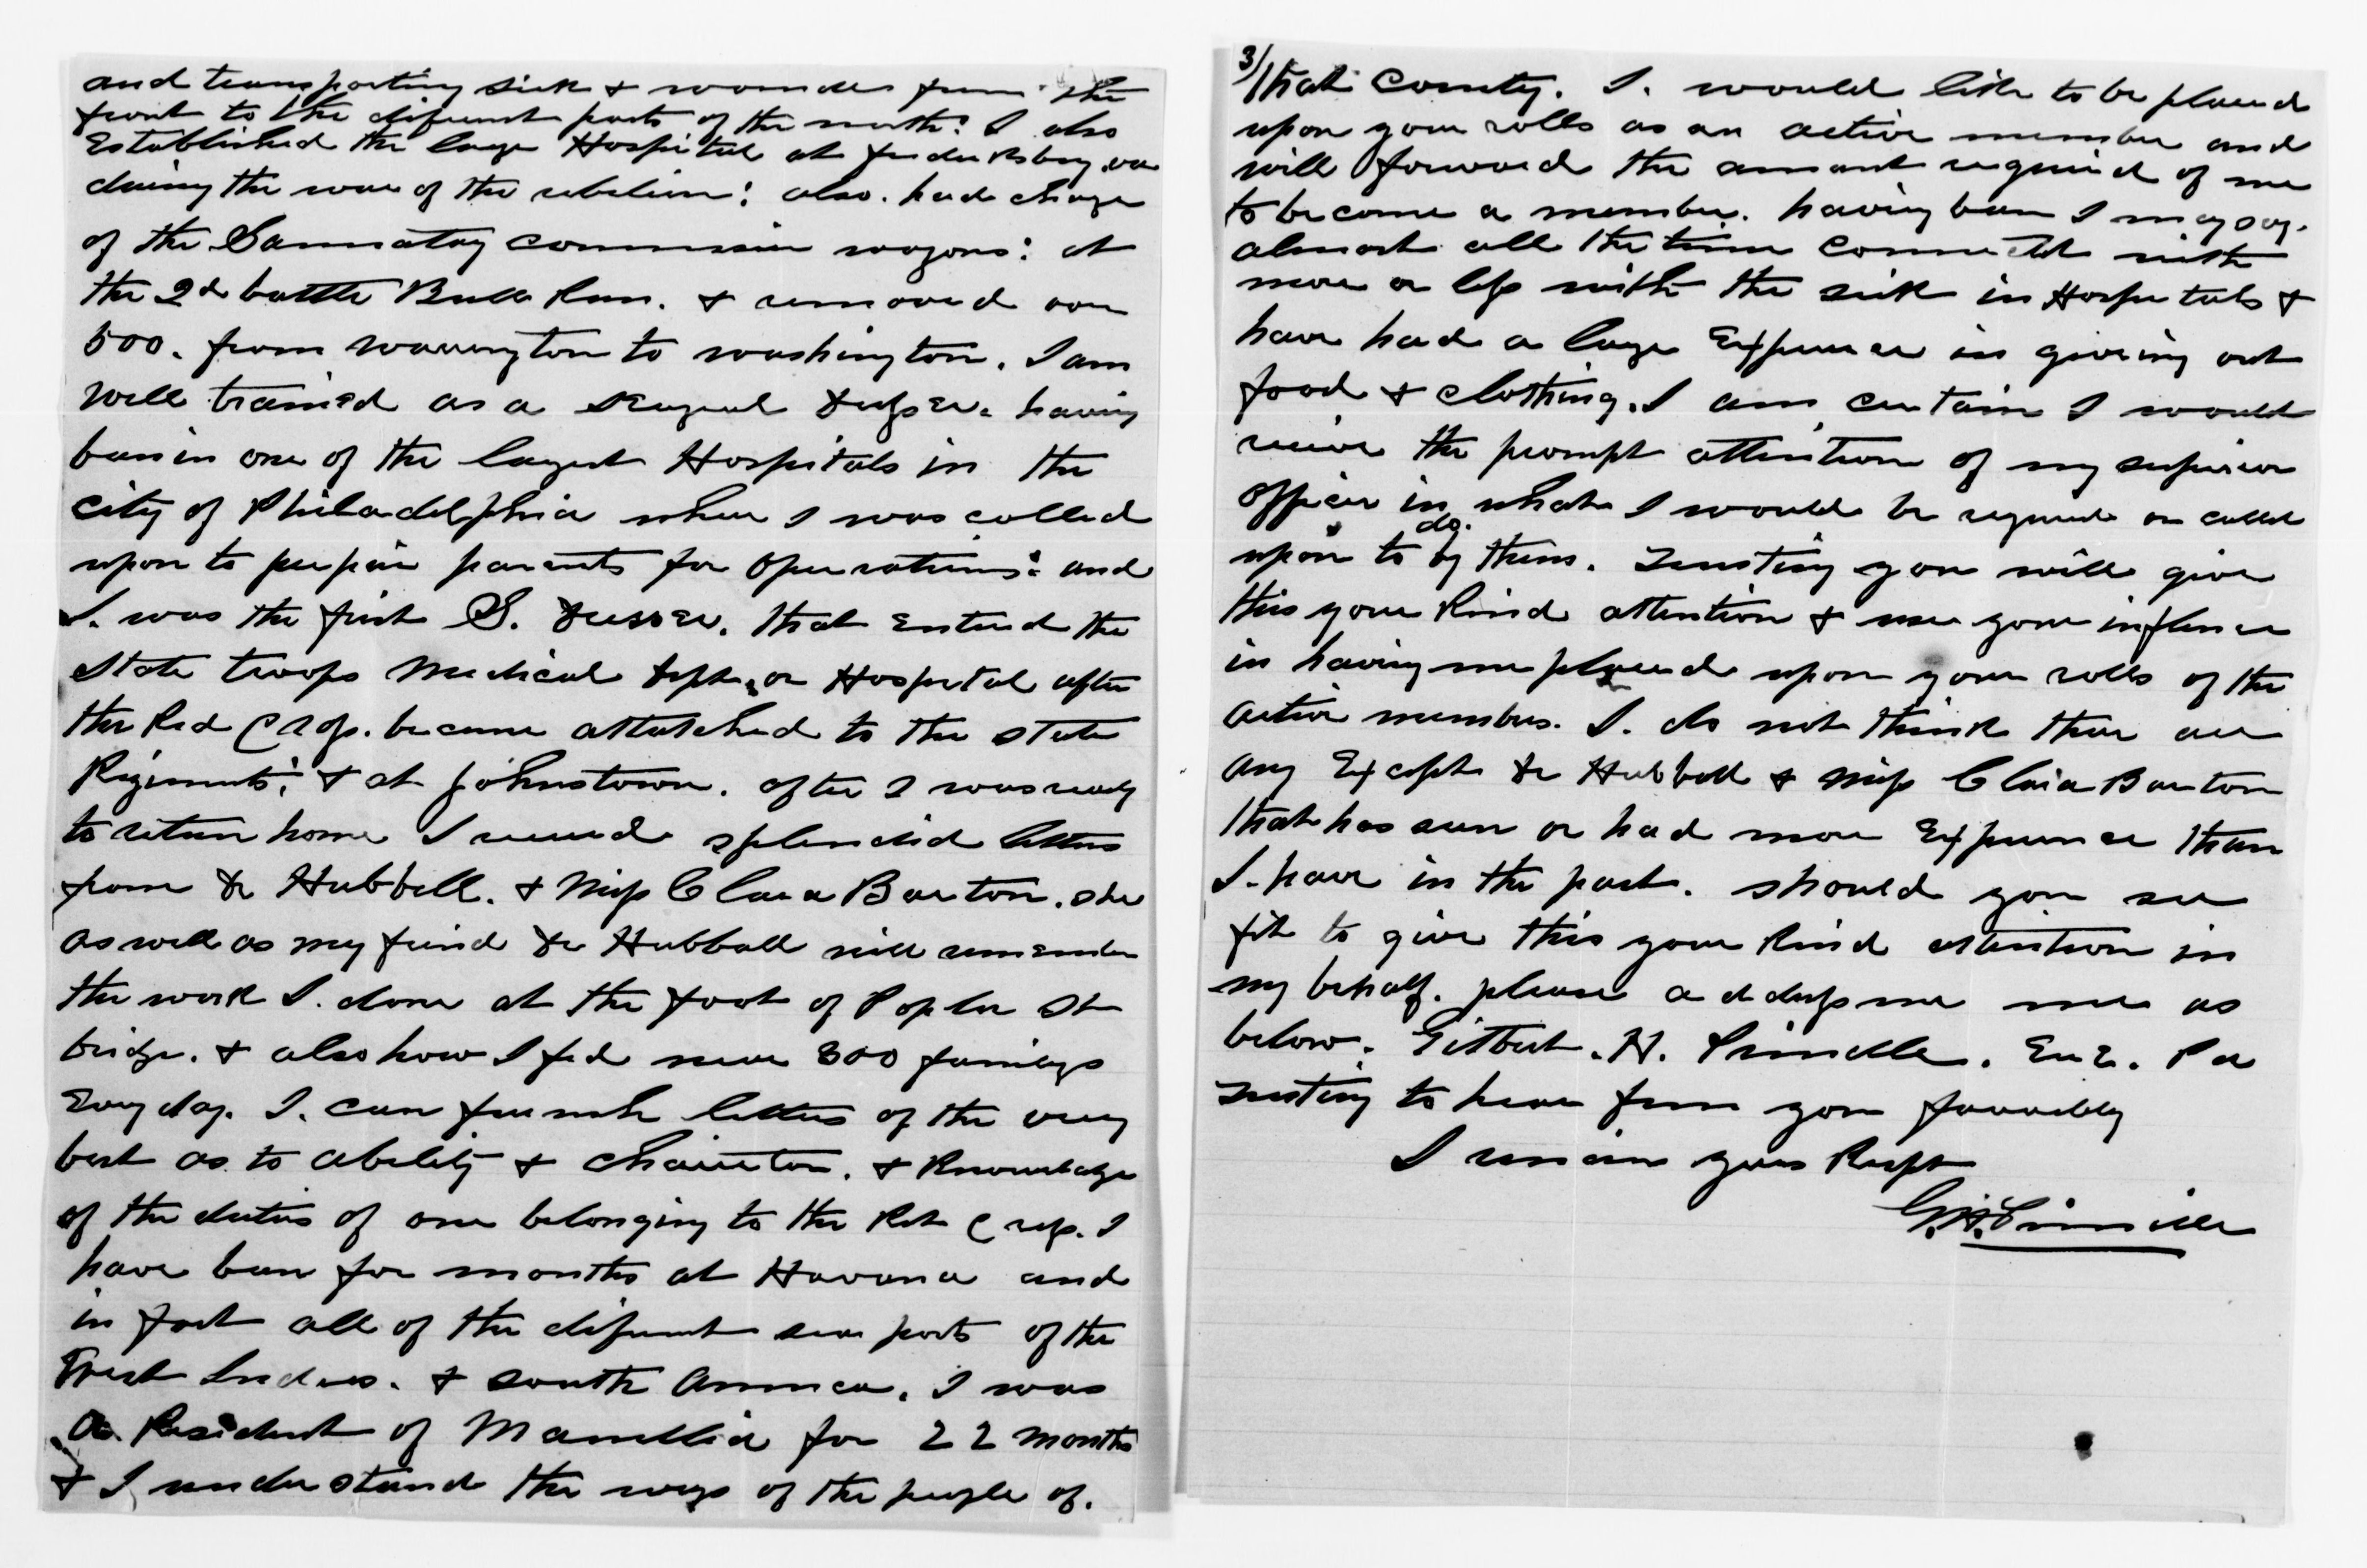 and transporting sick & wounded from the
front to the difrent parts of the north: I also
Established the large Hospital at Fredricksburg va
during the war of the rebelion: also. had charge
of the Sannatay commission wagons: at
the 2d battle Bull Run. & removed over
500. from Warrington to Washington. I am
well trained as a Surgical Dresser. having
been in one of the largest Hospitals in the
city of Philadelphia where I was called
upon to prepair parients for operations: and
I. was the first S. Dresser. that Entered the
State troops Medical Dept. or Hospital after
the Red Cross. became attatched to the State
Regiments: & at Johnstown. after I was ready
to return home I received splendid letters
from Dr Hubbell. & Miss Clara Barton. she
as well as my friend Dr Hubball will remember
the work I. done at the foot of Poplar St
bridge. & also how I fed near 800 familys
Every day. I. can furnish letters of the very
best as to ability & charicter. & Knowledge
of the duties of one belonging to the Red Cross. I
have been for months at Havana and
in fact all of the difrent sea ports of the
West Indies. & South America. I was
a. Resident of Manellia for 22 months
& I understand the ways of the people of.
3/
that County. I. would like to be placed
upon your rolls as an active member and
will forward the amount required of me
to become a member. having been I may say.
almost all the time connected with
more or less with the sick in Hospitals &
have had a large Experience in giving out
food & clothing. I am certain I would
receive the prompt attention of my superior
officer in what I would be required or called
upon to do by them. Trusting you will give
this your Kind attention & use your influence
in having me placed upon your rolls of the
active members. I. do not think there are
any Except Dr Hubbell & Miss Clara Barton
that has seen or had more Experience than
I. have in the past. should you see
fit to give this your Kind attention in
my behalf. please address me as
below. Gilbert. H. Erie. Pa
Trusting to hear from you favorably
I remain yours Respt
G. H.